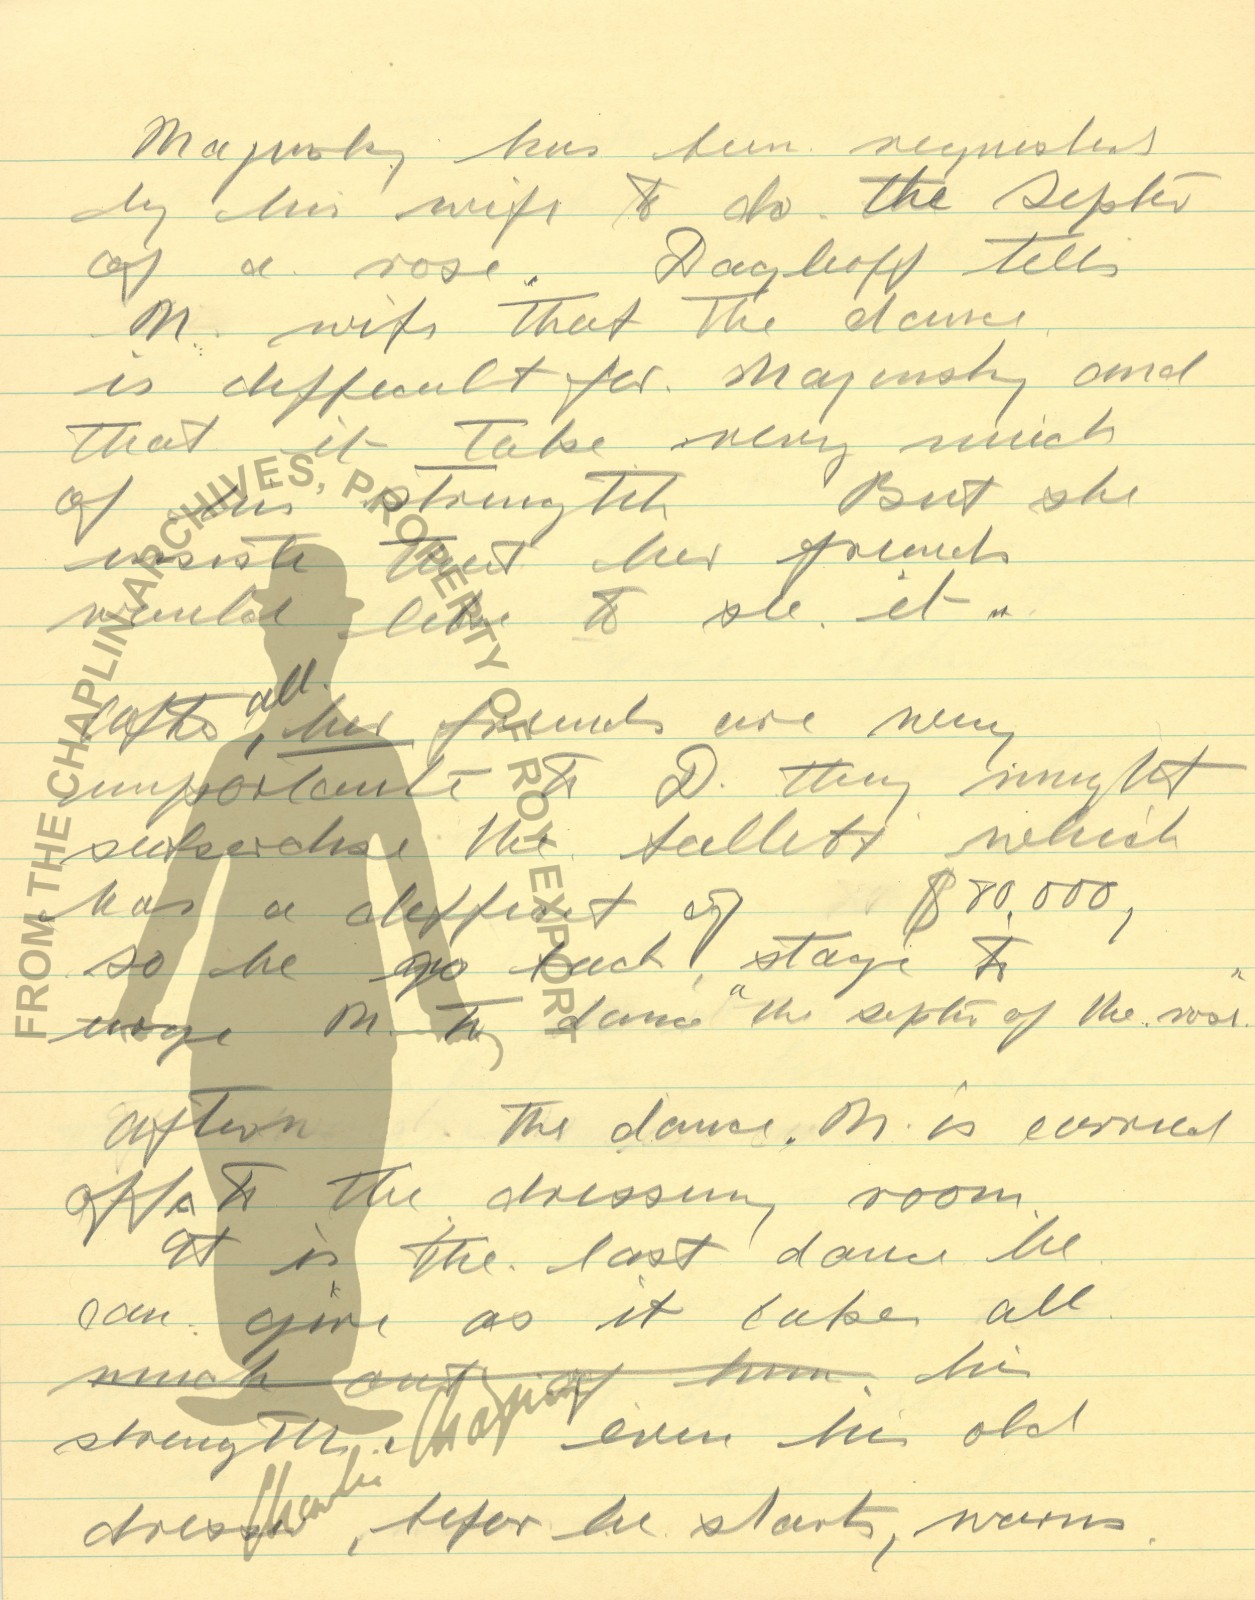 Majinsky has been requested
by his wife to do. the Septer
of a rose. Dagloff tells
M. wife that the dance
is difficult for. Majinsky and
that it take very much
of his strength But she
insists that her friends
would like to see it"
after all, her friends are very
importants to D. they might
subsidise the ballets which
has a defficet of $80,000,
so he go back stage to
urge M. to dance "the septer of the rose."
aftern the dance. M. is carried
off to the dressing room.
It is the last dance he
can give as it takes all
much out of him. his
strength. even his old
dresser, befor he starts, warns.
FROM THE CHAPLIN ARCHIVES, PROPERTY OF ROY EXPORT
Charlie Chaplin